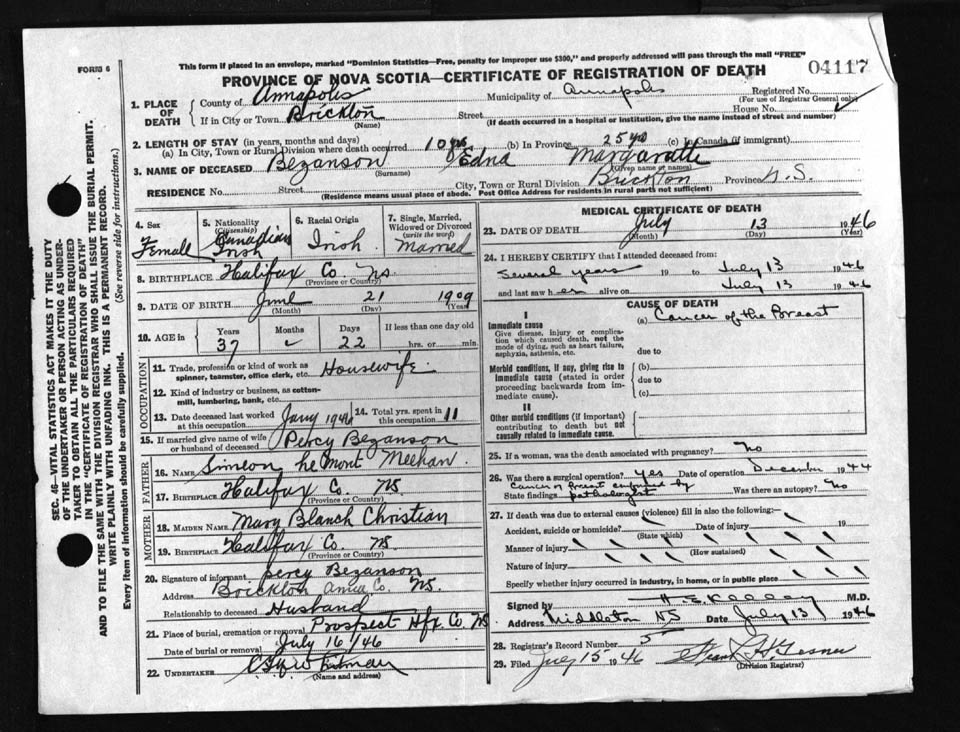 This form if placed in an envelope, marked "Dominion Statistics—Free, penalty for improper use $300," and properly addressed will pass through the mail "FREE"
FORM 6
PROVINCE OF NOVA SCOTIA—CERTIFICATE OF REGISTRATION OF DEATH 04117
1. PLACE OF DEATH
County of Annapolis Municipality of Annapolis Registered No.
(For use of Registrar General only)
If in City or Town Brickton Street House No.
(Name) (If death occurred in a hospital or institution, give the name instead of street and number)
2. LENGTH OF STAY (in years, months and days)
(a) In City, Town or Rural Division where death occurred 10 yrs (b) In Province 25 yrs (c) In Canada (if immigrant)
3. NAME OF DECEASED Bezanson Edna Margarette
(Surname) (Given name or names)
RESIDENCE No. Street City, Town or Rural Division Brickton Province N.S.
(Residence means usual place of abode. Post Office Address for residents in rural parts not sufficient)
4. Sex Female
5. Nationality (Citizenship) Canadian Irish
6. Racial Origin Irish
7. Single, Married, Widowed or Divorced (write the word) Married
8. BIRTHPLACE Halifax Co. NS.
(Province or Country)
9. DATE OF BIRTH June 21 1909
(Month) (Day) (Year)
10. AGE in Years Months Days If less than one day old
37 22 hrs. or min.
OCCUPATION
11. Trade, profession or kind of work as spinner, teamster, office clerk, etc. Housewife
12. Kind of industry or business, as cotton-mill, lumbering, bank, etc.
13. Date deceased last worked at this occupation Jany 1946 14. Total yrs. spent in this occupation 11
15. If married give name of wife or husband of deceased Percy Bezanson
FATHER
16. NAME Simeon Le Mont Meehan
17. BIRTHPLACE Halifax Co. NS.
(Province or Country)
MOTHER
18. MAIDEN NAME Mary Blanch Christian
19. BIRTHPLACE Halifax Co. NS.
(Province or Country)
20. Signature of informant Percy Bezanson
Address Brickton Anna Co. NS.
Relationship to deceased Husband
21. Place of burial, cremation or removal Prospect Hfx Co. NS
Date of burial or removal July 16/46
22. UNDERTAKER
(Name and address)
MEDICAL CERTIFICATE OF DEATH
23. DATE OF DEATH July 13 1946
(Month) (Day) (Year)
24. I HEREBY CERTIFY that I attended deceased from:
Several years 19 to July 13 1946
and last saw her alive on July 13 1946
CAUSE OF DEATH
I
Immediate cause (a) Cancer of the Breast
Give disease, injury or complication which caused death, not the mode of dying, such as heart failure, asphyxia, asthenia, etc.
due to
Morbid conditions, if any, giving rise to immediate cause (stated in order proceeding backwards from immediate cause).
(b)
due to
(c)
II
Other morbid conditions (if important) contributing to death but not causally related to immediate cause.
25. If a woman, was the death associated with pregnancy? No
26. Was there a surgical operation? yes Date of operation December 1944
State findings Cancer of Breast confirmed by pathologist Was there an autopsy? No
27. If death was due to external causes (violence) fill in also the following:—
Accident, suicide or homicide? Date of injury 19
(State which)
Manner of injury
(How sustained)
Nature of injury
Specify whether injury occurred in industry, in home, or in public place
Signed by M.D.
Address Middleton NS Date July 13 1946
28. Registrar's Record Number 5
29. Filed July 15 1946 Frank H Gesner
(Division Registrar)
SEC. 46—VITAL STATISTICS ACT MAKES IT THE DUTY
OF THE UNDERTAKER OR PERSON ACTING AS UNDER-
TAKER TO OBTAIN ALL THE PARTICULARS REQUIRED
IN THE "CERTIFICATE OF REGISTRATION OF DEATH"
AND TO FILE THE SAME WITH THE DIVISION REGISTRAR WHO SHALL ISSUE THE BURIAL PERMIT.
WRITE PLAINLY WITH UNFADING INK. THIS IS A PERMANENT RECORD.
Every item of information should be carefully supplied. (See reverse side for instructions.)